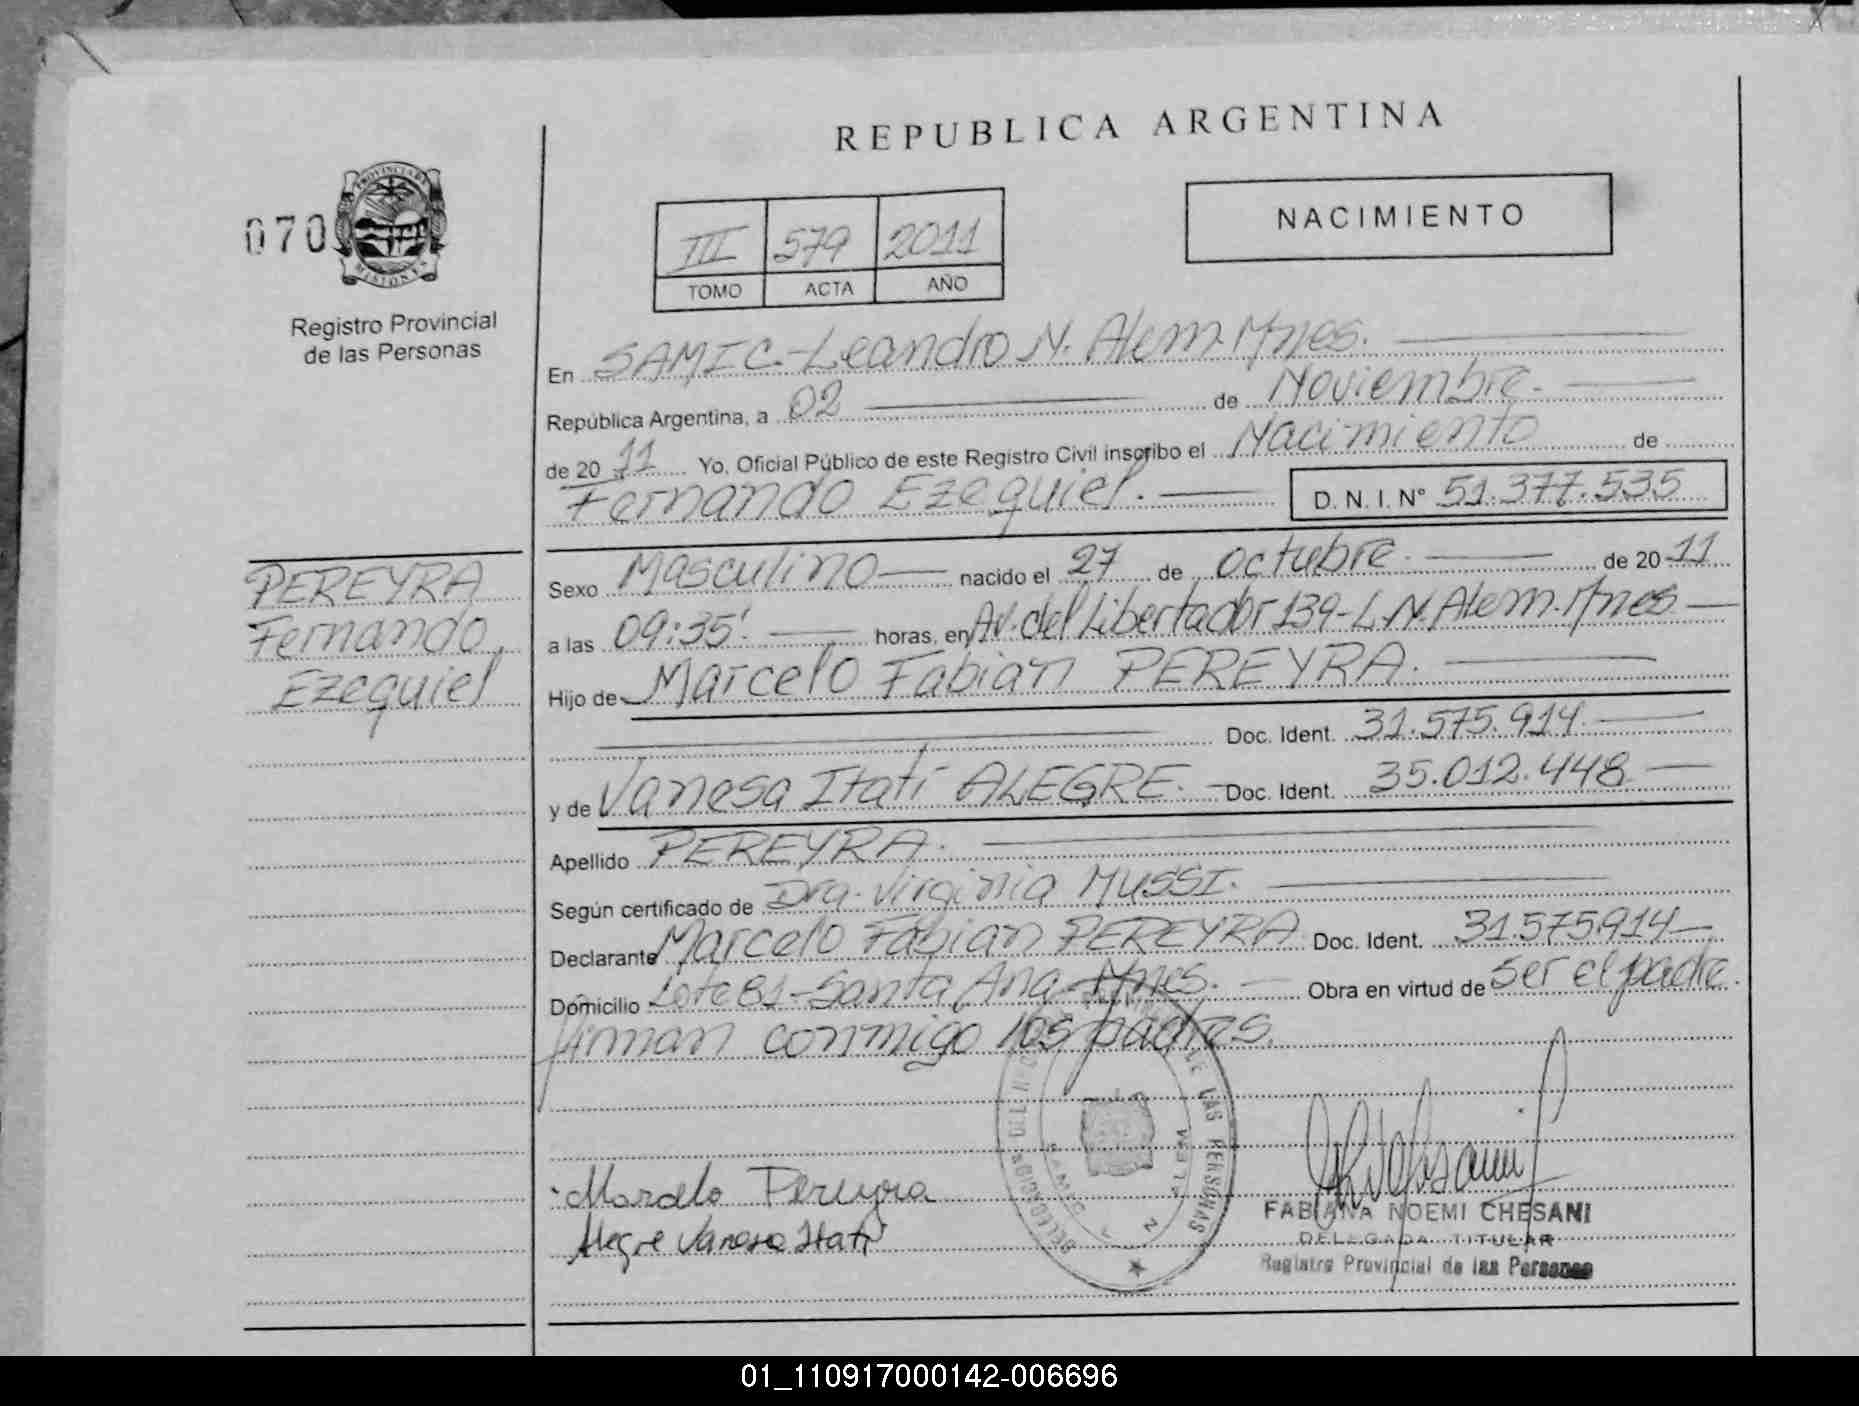 REPUBLICA ARGENTINA
NACIMIENTO
070
PROVINCIA DE
MISIONES
Registro Provincial
de las Personas
III 579 2011
TOMO ACTA AÑO
En SAMIC.-Leandro N. Alem. Mnes.
República Argentina, a 02 de Noviembre.
de 20 11 Yo, Oficial Público de este Registro Civil inscribo el Nacimiento de
Fernando Ezequiel. D. N. I. N° 51.377.535
PEREYRA
Fernando
Ezequiel
Sexo Masculino nacido el 27 de octubre. de 20 11
a las 09:35'. horas, en Av. del Libertador 139-L.N. Alem. Mnes
Hijo de Marcelo Fabian PEREYRA.
Doc. Ident. 31.575.914.
y de Vanesa Itatí ALEGRE. Doc. Ident. 35.012.448
Apellido PEREYRA.
Según certificado de Dra. Virginia MUSSI.
Declarante Marcelo Fabian PEREYRA Doc. Ident. 31.575914
Domicilio Lote 81-Santa Ana-Mnes. Obra en virtud de ser el padre.
firman conmigo los padres.
DE LAS PERSONAS
N. ALEM
Marcelo Pereyra
Alegre Vanesa Itatí
FABIANA NOEMI CHESANI
DELEGADA TITULAR
Registro Provincial de las Personas
01_110917000142-006696